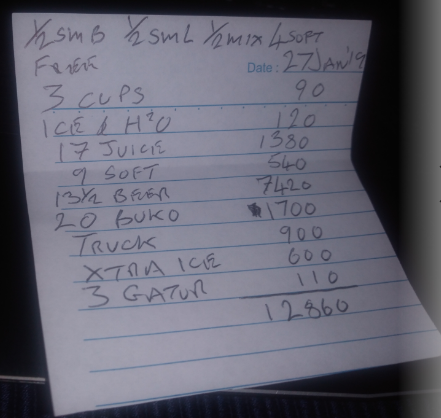 1/2 SMB 1/2 SML 1/2 MIX 4 SOFT
FREE Date: 27 JAN '19
3 CUPS 90
ICE & H²O 120
17 JUICE 1380
9 SOFT 540
13 1/2 BEER 7420
20 BUKO 1700
TRUCK 900
XTRA ICE 600
3 GATUR 110
12860